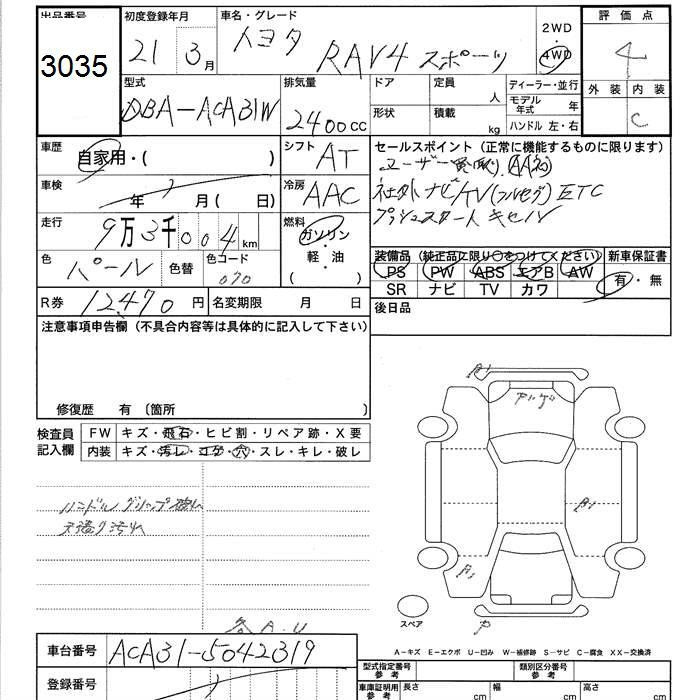 出品番号 初度登録年月 車名・グレード 2WD・4WD 評価点
3035 21 3月 トヨタ RAV4 スポーツ 4
型式 排気量 ドア 定員 人 ディーラー・並行 外装 内装
DBA-ACA31W 2400cc 形状 積載 kg モデル年式 年 C
ハンドル 左・右
車歴 自家用・( ) シフト AT セールスポイント (正常に機能するものに限ります)
ユーザー買取り
車検 年 月 (日) 冷房 AAC 社外ナビ/TV(フルセグ) ETC
走行 9万3千004km 燃料 ガソリン・軽・油 ( ) プッシュスタート
色 パール 色替 色コード 070 装備品 (純正品に限り○をつけてください) 新車保証書
PS PW ABS エアB AW 有・無
R券 12470円 名変期限 月 日 SR ナビ TV カワ
注意事項申告欄 (不具合内容等は具体的に記入して下さい) 後日品
修復歴 有 〔箇所 〕
検査員記入欄 FW キズ・飛石・ヒビ割・リペア跡・X要
内装 キズ・汚レ・コゲ・穴・スレ・キレ・破レ
ハンドルグリップ
天張り汚れ
各A.U
スペア
A-キズ E-エクボ U-凹み W-補修跡 S-サビ C-腐食 XX-交換済
車台番号 ACA31-5042319 型式指定番号 参考 類別区分番号 参考
登録番号 車庫証明用 参考 長さ cm 幅 cm 高さ cm